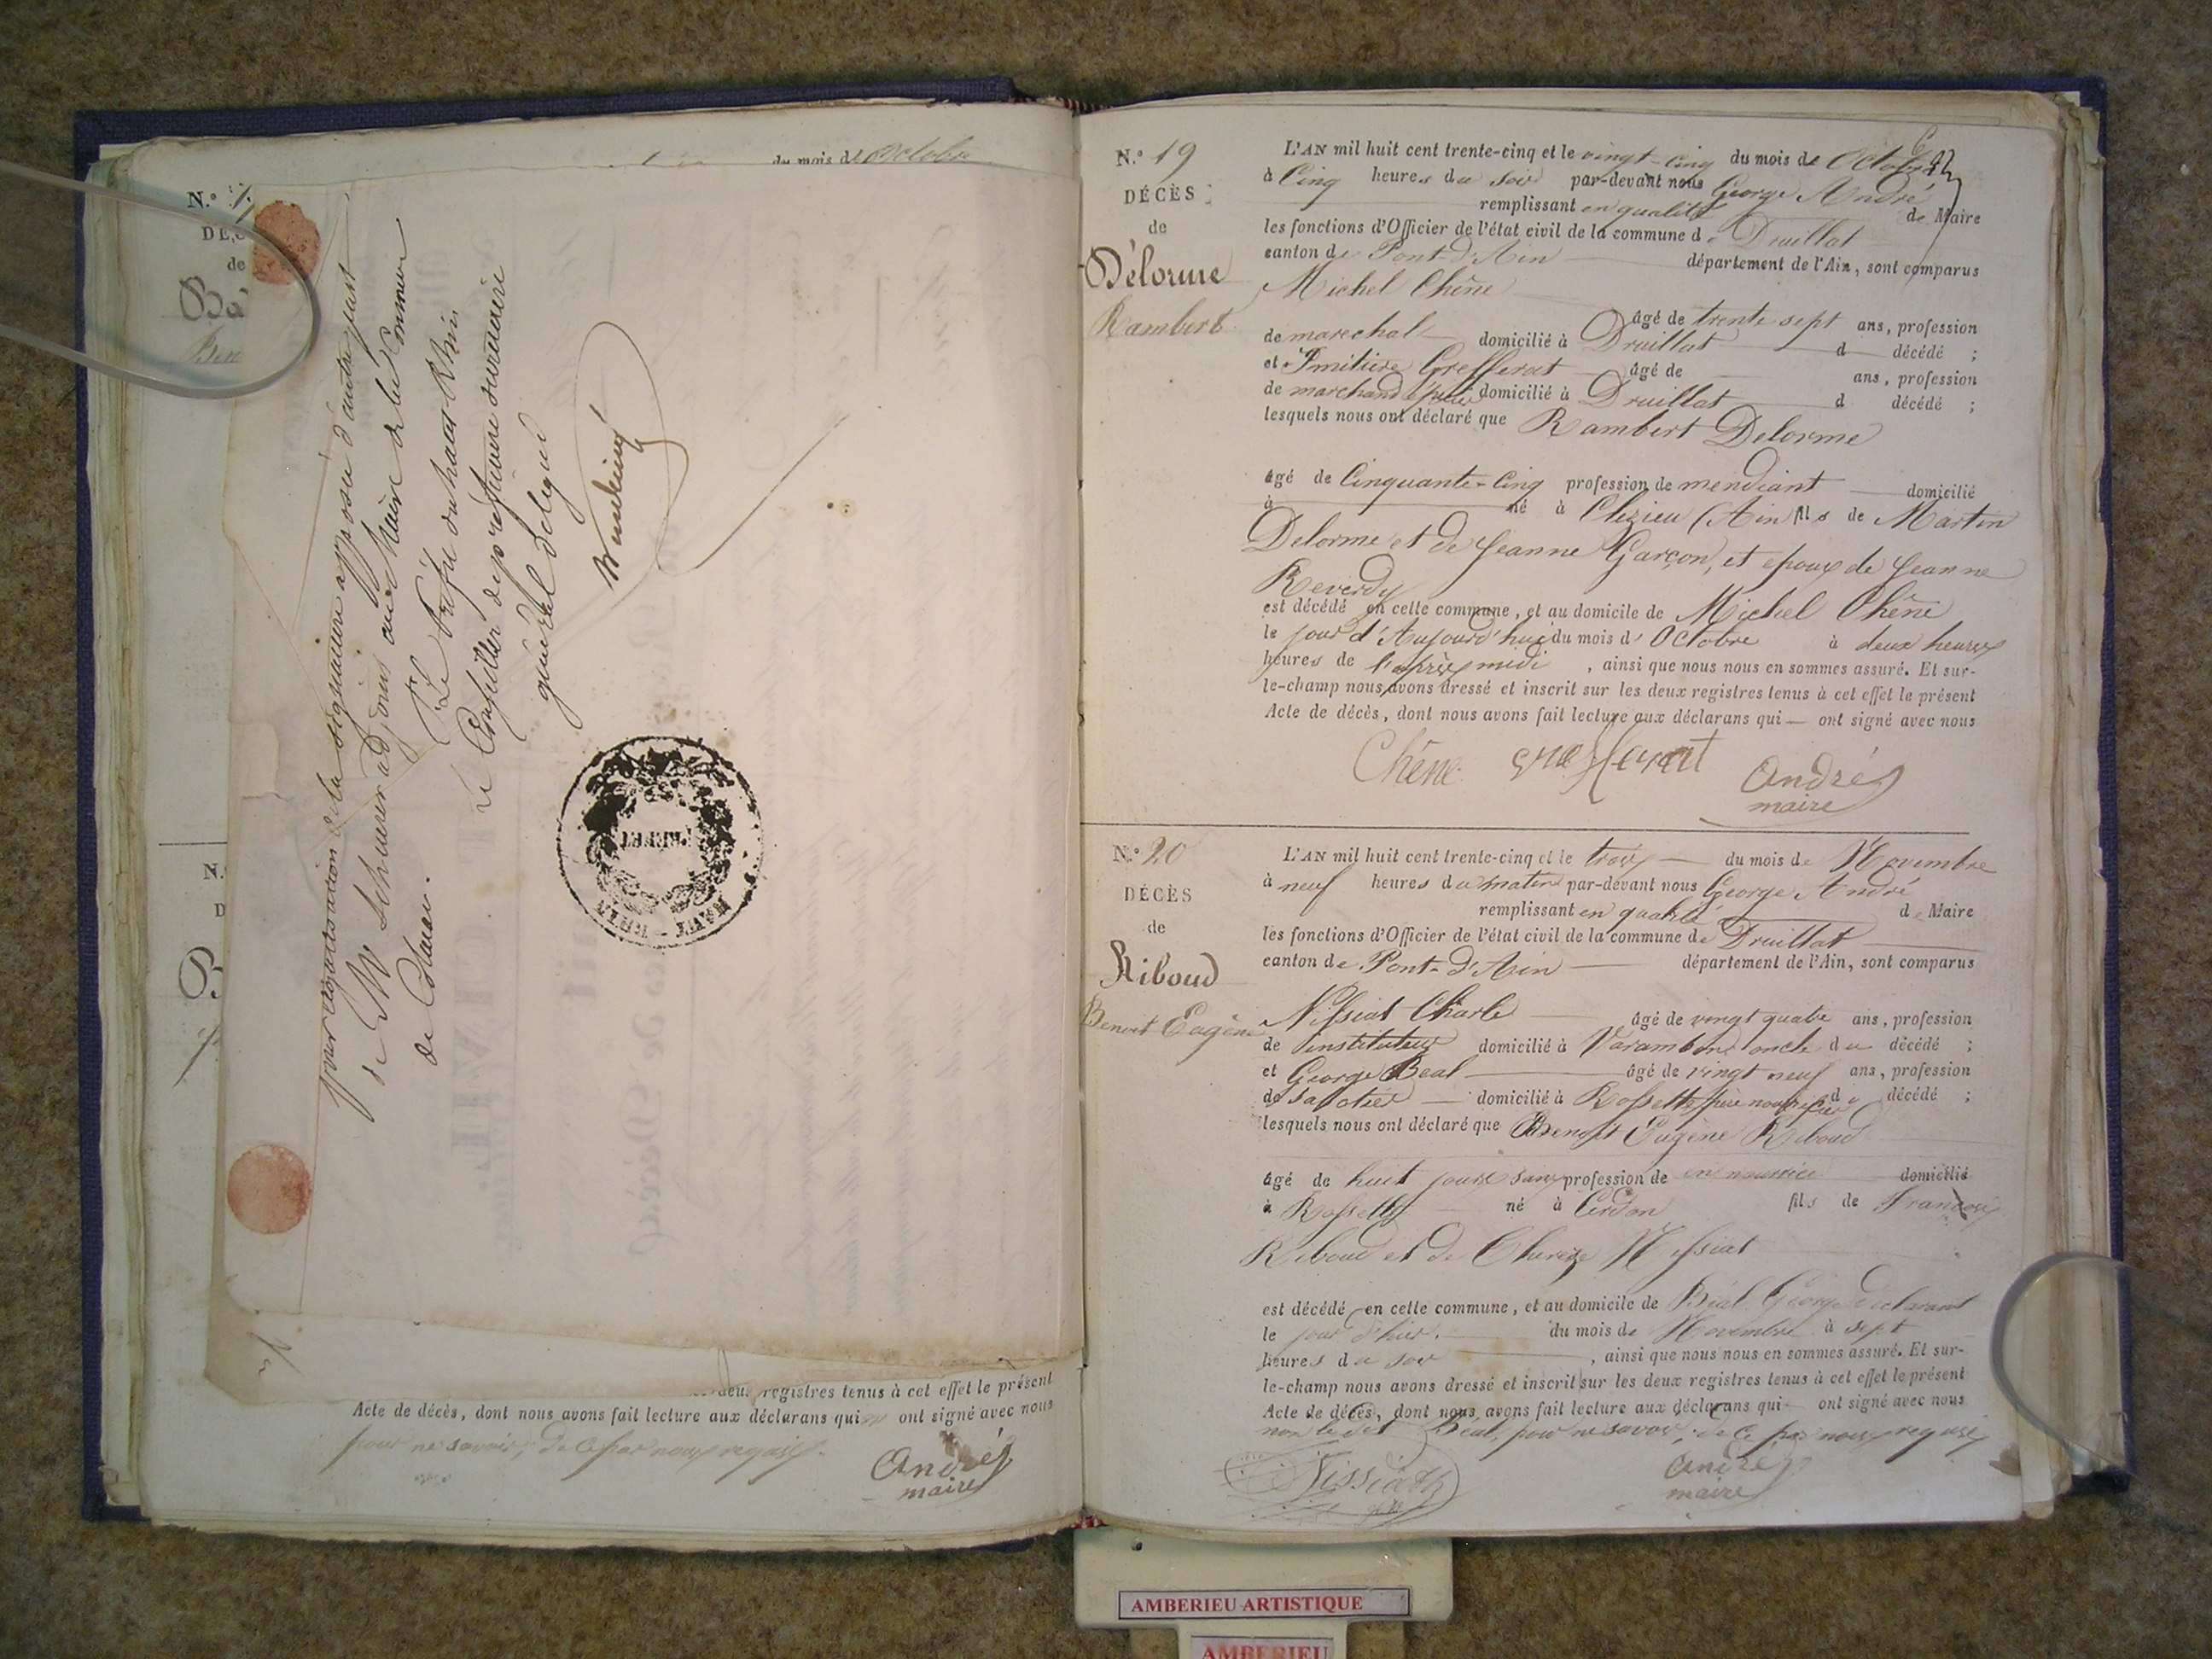 du mois de Octobre
N.°
DÉC
de
Ba
Ben
N.
D
B
pour légalisation de la signature apposée d'autre part
de M. Schurer adjoint au Maire de la Commune
de Colmar.
Pr. Le Préfet du haut Rhin
Le Conseiller de préfecture secrétaire
général délégué
HAUT-RHIN
deux registres tenus à cet effet le présent
Acte de décès, dont nous avons fait lecture aux déclarans qui ont signé avec nous
pour ne savoir, de ce par nous requis.
André
maire
N.° 19
DÉCÈS
de
Délorme
Rambert
L'AN mil huit cent trente-cinq et le vingt-cinq du mois de Octobre
à Cinq heures du soir par-devant nous George André
remplissant en qualité de Maire
les fonctions d'Officier de l'état civil de la commune de Druillat
canton de Pont-d'Ain département de l'Ain, sont comparus
Michel Chêne
âgé de trente sept ans, profession
de marechal domicilié à Druillat d décédé ;
et Grefferat âgé de ans, profession
de marchand domicilié à Druillat d décédé ;
lesquels nous ont déclaré que Rambert Delorme
âgé de Cinquante-Cinq profession de mendiant domicilié
à né à Clezieu (Ain fils de Martin
Delorme et de Jeanne Garçon, et epoux de Jeanne
Reverdy
est décédé en celle commune, et au domicile de Michel Chêne
le jour d'Aujourd'hui du mois d' Octobre à deux heures
heures de l'après midi, ainsi que nous nous en sommes assuré. Et sur-
le-champ nous avons dressé et inscrit sur les deux registres tenus à cet effet le présent
Acte de décès, dont nous avons fait lecture aux déclarans qui — ont signé avec nous
Chêne Grefferat André
maire
N.° 20
DÉCÈS
de
Riboud
Benoit Eugène
L'AN mil huit cent trente-cinq et le trois du mois de Novembre
à neuf heures du matin par-devant nous George André
remplissant en qualité de Maire
les fonctions d'Officier de l'état civil de la commune de Druillat
canton de Pont-d'Ain département de l'Ain, sont comparus
Nissiat Charle âgé de vingt quatre ans, profession
de instituteur domicilié à Varambon oncle du décédé ;
et George Béal âgé de vingt neuf ans, profession
de sabotier domicilié à Rossette père nourricier d décédé ;
lesquels nous ont déclaré que Benoit Eugène Riboud
âgé de huit jours sans profession de en nourrice domicilié
à Rossette né à Cerdon fils de François
Riboud et de Nissiat
est décédé en celle commune, et au domicile de Béal George déclarant
le jour d'hier du mois de Novembre à sept
heures du soir, ainsi que nous nous en sommes assuré. Et sur-
le-champ nous avons dressé et inscrit sur les deux registres tenus à cet effet le présent
Acte de décès, dont nous avons fait lecture aux déclarans qui — ont signé avec nous
non ledit Béal, pour ne savoir, de ce par nous requis
Nissiat André
maire
AMBERIEU ARTISTIQUE
AMBERIEU